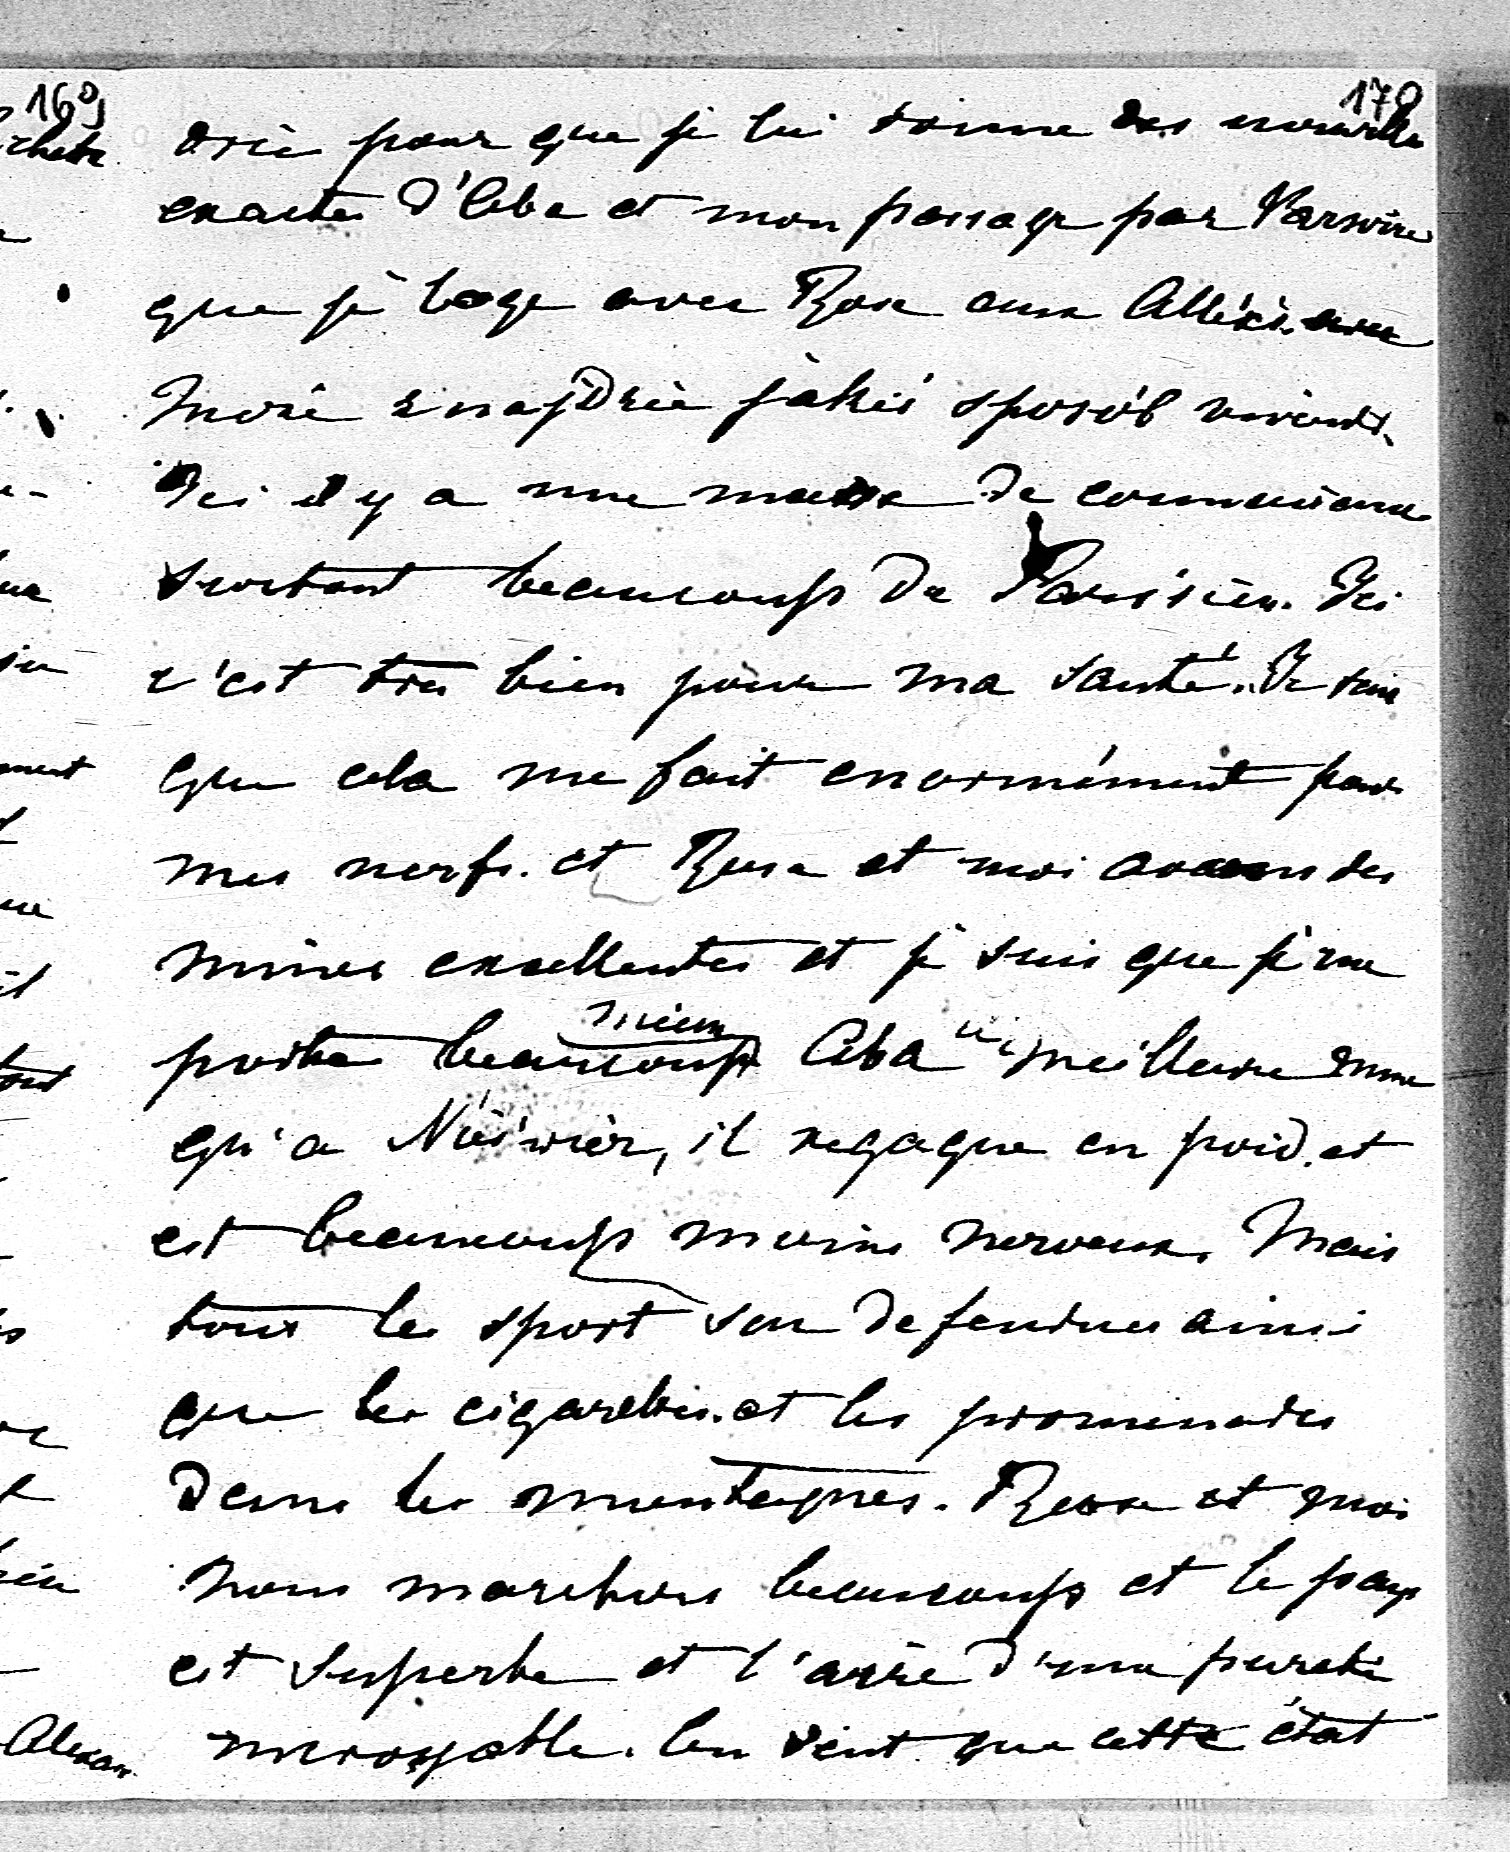 170
drie pour que je lui donne des nouvelles
exactes d'Aba et mon passage par Varsovie
que je loge avec Rose aux Alleés. avec
Może znajdzie jakiś sposób vivendi.
Ici il y a une masse de connaisance
surtout beaucoup de Parisien. Ici
c'est très bien pour ma santé. Je sens
que cela me fait enormément pour
mes nerfs. et Rose et moi avons des
mines excellentes et je suis que je me
porte beaucoup mieux Aba a meilleure mine
qu'a Nieśwież, il regagne en poid. et
est beaucoup moins nerveux. Mais
tous les sport son defendues ainsi
que les cigarettes. et les promenades
dans les montagnes. Rose et moi
nous marchons beaucoup et le pays
est superbe et l'aire d'une pureté
incroyable. On sent que cette état